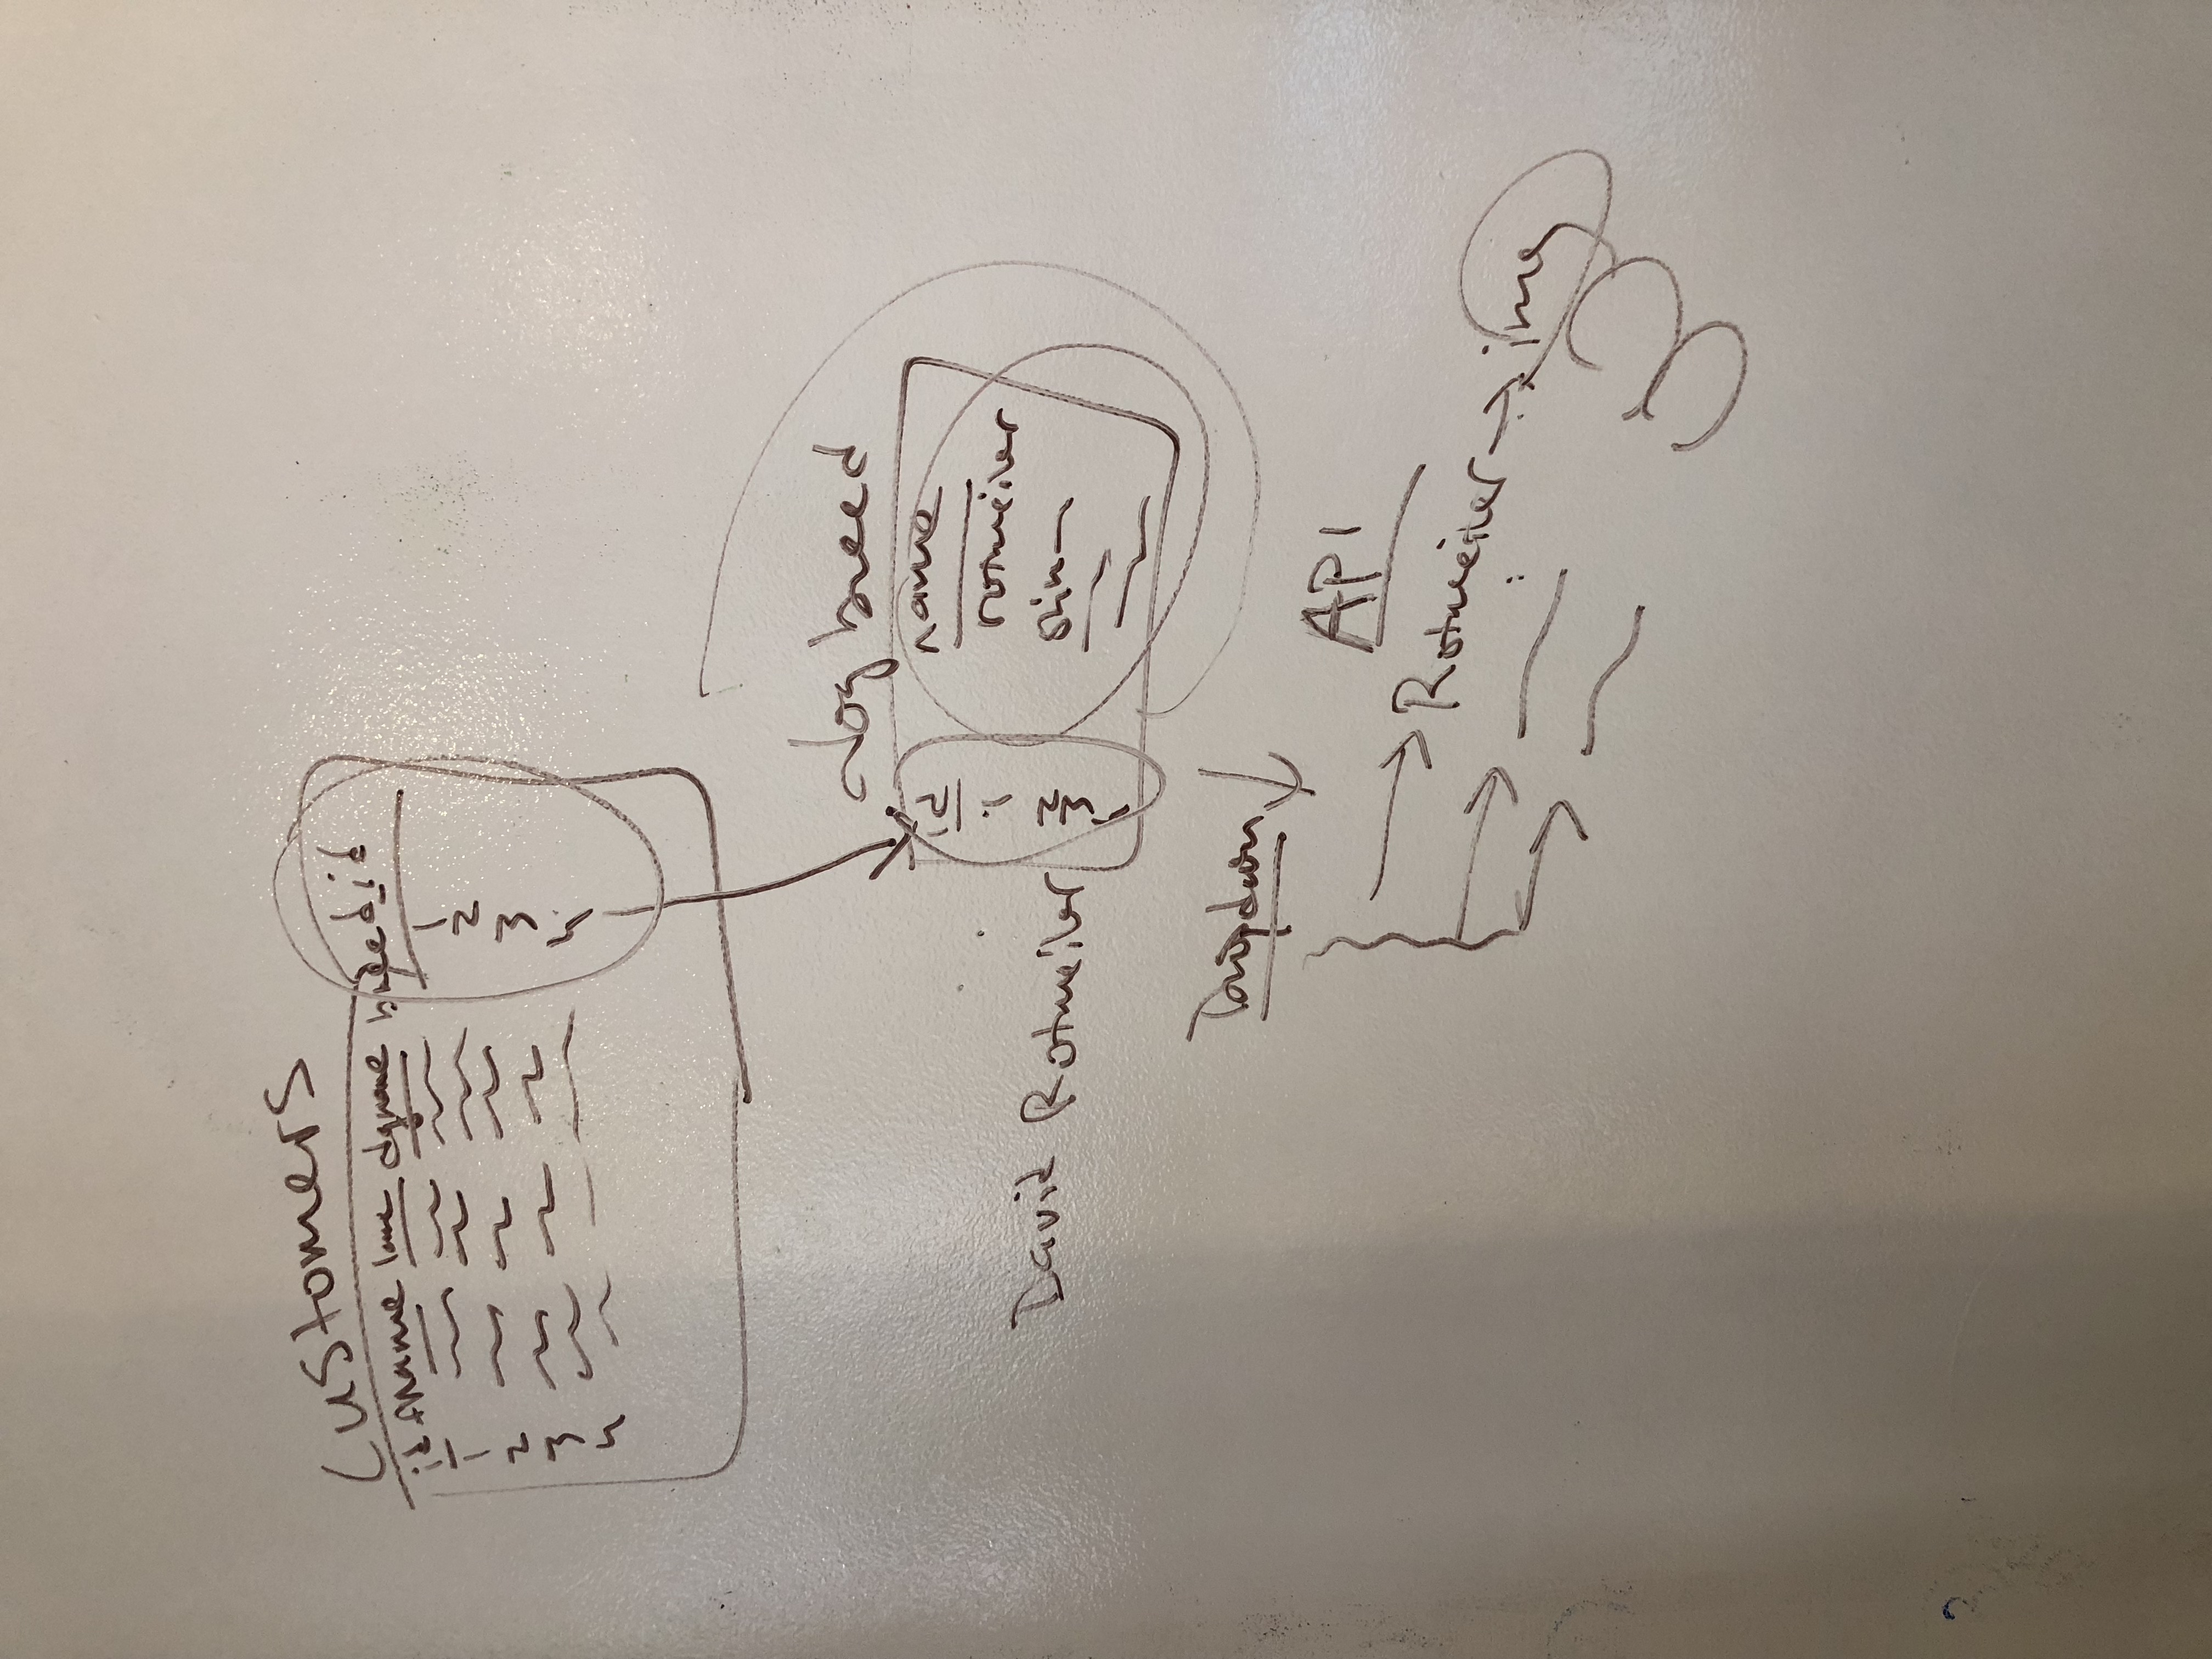 Customers
id fname lname dgname breed_id
1
1 2
2 3
3 4
4
dog breed
id name
1 rotweiler
David Rotweiler 2
3
Dropdown
API
Rotweiler → img